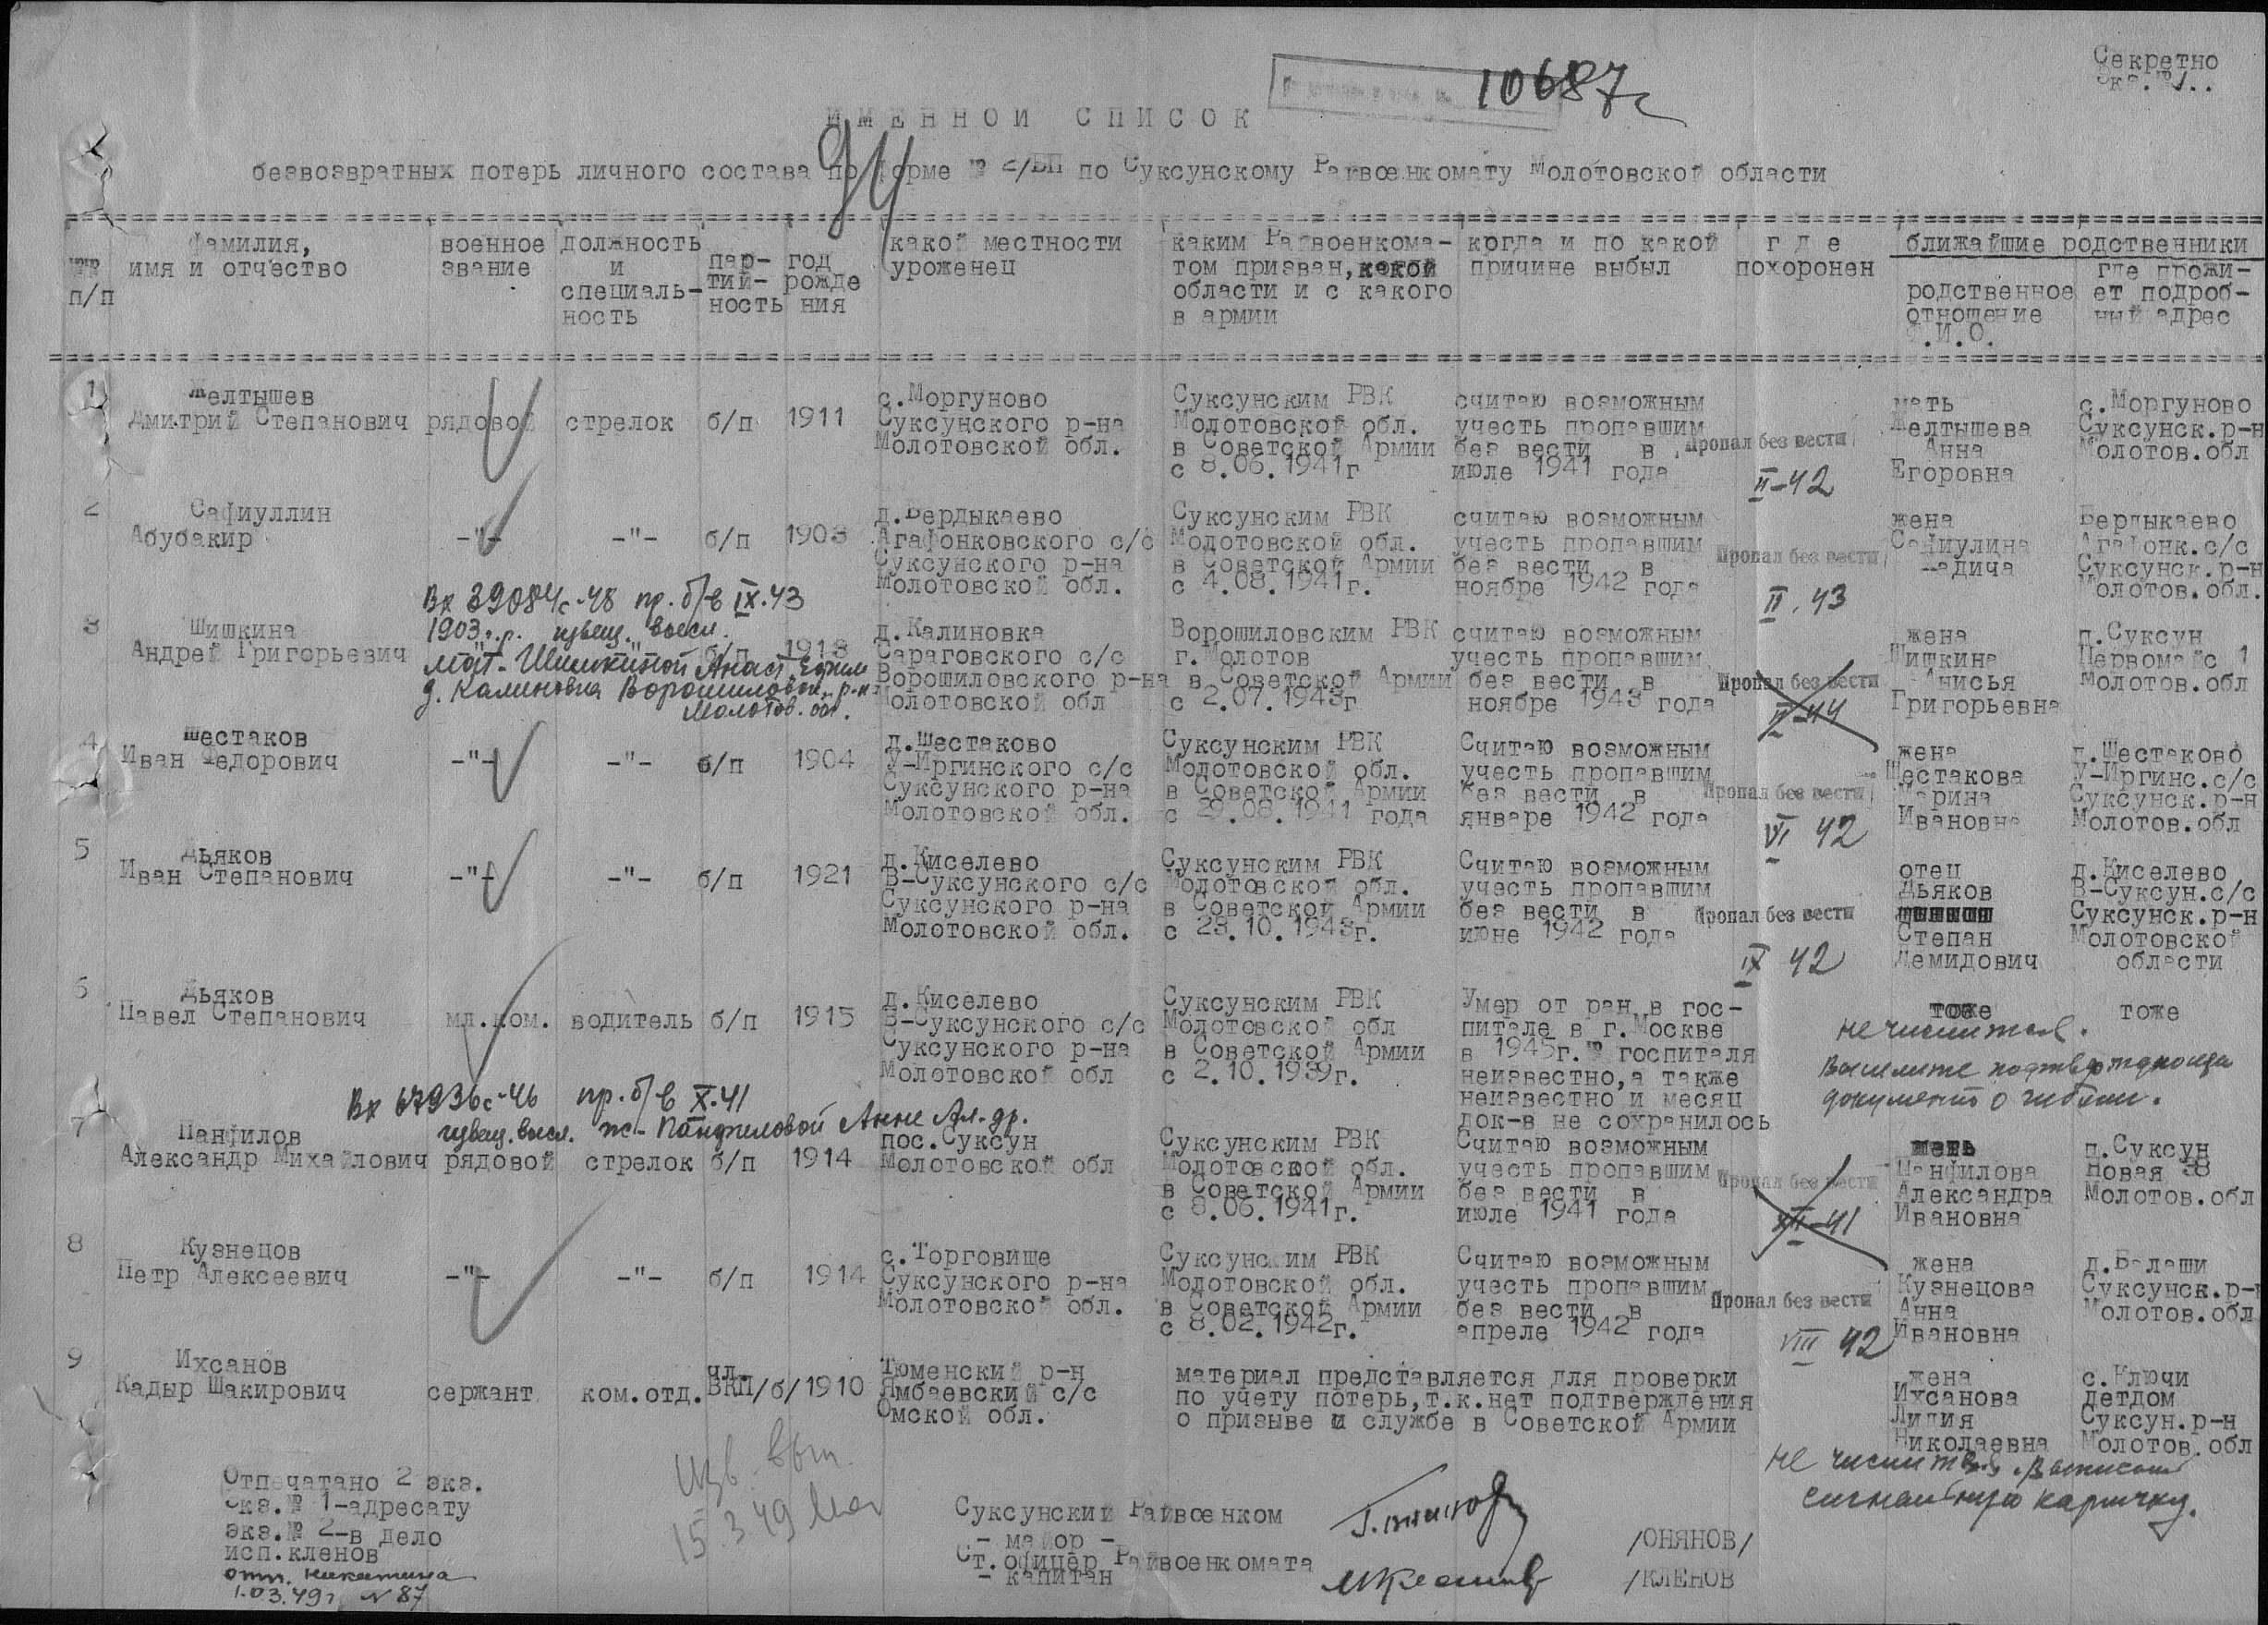 Секретно
Экз.№1..
10687с
ИМЕННОЙ СПИСОК
94
безвозвратных потерь личного состава по форме № 2/БП по Суксунскому Райвоенкомату Молотовской области
№№ п/п
Фамилия, имя и отчество
военное звание
должность и специаль-ность
пар-тий-ность
год рожде ния
какой местности уроженец
каким Райвоенкома-том призван, какой области и с какого в армии
когда и по какой причине выбыл
где похоронен
ближайшие родственники
родственное отношение Ф.И.О.
где прожи-ет подроб-ный адрес
1
Желтышев
Дмитрий Степанович рядовой стрелок б/п 1911
с.Моргуново
Суксунского р-на
Молотовской обл.
Суксунским РВК
Молотовской обл.
в Советской Армии
с 8.06.1941г
считаю возможным
учесть пропавшим
без вести в
июле 1941 года
Пропал без вести
II-42
мать
Желтышева
Анна
Егоровна
с.Моргуново
Суксунск.р-н
Молотов.обл
2
Сафиуллин
Абубакир -"- -"- б/п 1903
д.Бердыкаево
Агафонковского с/с
Суксунского р-на
Молотовской обл.
Суксунским РВК
Молотовской обл.
в Советской Армии
с 4.08.1941г.
считаю возможным
учесть пропавшим
без вести в
ноябре 1942 года
Пропал без вести
II.43
жена
Сафиулина
Бердыкаево
Агафонк.с/с
Суксунск.р-н
Молотов.обл.
Вх 39084с-48 пр. б/в IX.43
1903 г.р. извещ. высл.
мат-Шишкиной Анаст. Ефим
д. Калиновка Ворошиловск. р-н
Молотов. обл.
3
Шишкина
Андрей Григорьевич б/п 1913
д.Калиновка
Сараговского с/с
Ворошиловского р-на
Молотовской обл
Ворошиловским РВК
г.Молотов
в Советской Армии
с 2.07.1943г
считаю возможным
учесть пропавшим
без вести в
ноябре 1943 года
Пропал без вести
II-44
жена
Шишкина
Анисья
Григорьевна
п.Суксун
Первомайс 1
Молотов.обл
4
Шестаков
Иван Федорович -"- -"- б/п 1904
д.Шестаково
У-Иргинского с/с
Суксунского р-на
Молотовской обл.
Суксунским РВК
Молотовской обл.
в Советской Армии
с 29.08.1941 года
Считаю возможным
учесть пропавшим
без вести в
январе 1942 года
Пропал без вести
VI 42
жена
Шестакова
Марина
Ивановна
д.Шестаково
У-Иргинс.с/с
Суксунск.р-н
Молотов.обл
5
Дьяков
Иван Степанович -"- -"- б/п 1921
д.Киселево
В-Суксунского с/с
Суксунского р-на
Молотовской обл.
Суксунским РВК
Молотовской обл.
в Советской Армии
с 23.10.1943г.
Считаю возможным
учесть пропавшим
без вести в
июне 1942 года
Пропал без вести
IX 42
отец
Дьяков
Степан
Демидович
д.Киселево
В-Суксун.с/с
Суксунск.р-н
Молотовской
области
6
Дьяков
Павел Степанович мл.ком. водитель б/п 1915
д.Киселево
В-Суксунского с/с
Суксунского р-на
Молотовской обл
Суксунским РВК
Молотовской обл
в Советской Армии
с 2.10.1939г.
Умер от ран в гос-
питале в г.Москве
в 1945г.№ госпиталя
неизвестно,а также
неизвестно и месяц
док-в не сохранилось
тоже
тоже
не числится.
Вышлите подтверждающий
документ о гибели.
Вх 67936с-46 пр. б/в X.41
извещ. высл. ж-Панфиловой Анне Ал-др.
7
Панфилов
Александр Михайлович рядовой стрелок б/п 1914
пос.Суксун
Молотовской обл
Суксунским РВК
Молотовской обл.
в Советской Армии
с 8.06.1941г.
Считаю возможным
учесть пропавшим
без вести в
июле 1941 года
Пропал без вести
XII-41
мать
Панфилова
Александра
Ивановна
п.Суксун
Новая 38
Молотов.обл
8
Кузнецов
Петр Алексеевич -"- -"- б/п 1914
с.Торговище
Суксунского р-на
Молотовской обл.
Суксунским РВК
Молотовской обл.
в Советской Армии
с 8.02.1942г.
Считаю возможным
учесть пропавшим
без вести в
апреле 1942 года
Пропал без вести
VIII 42
жена
Кузнецова
Анна
Ивановна
д.Балаши
Суксунск.р-н
Молотов.обл
9
Ихсанов
Кадыр Шакирович сержант ком.отд. чл. ВКП/б/ 1910
Тюменский р-н
Ямбаевский с/с
Омской обл.
материал представляется для проверки
по учету потерь,т.к.нет подтверждения
о призыве и службе в Советской Армии
жена
Ихсанова
Лидия
Николаевна
с.Ключи
детдом
Суксун.р-н
Молотов.обл
не числится. Выписать
сигнальную карточку.
Отпечатано 2 экз.
экз.№ 1-адресату
экз.№ 2-в дело
исп.кленов
отп. Никитина
1.03.49г №87
Изв. вып.
15.3.49
Суксунский Райвоенком
- майор -
/ОНЯНОВ/
Ст.офицер Райвоенкомата
- капитан
/КЛЕНОВ